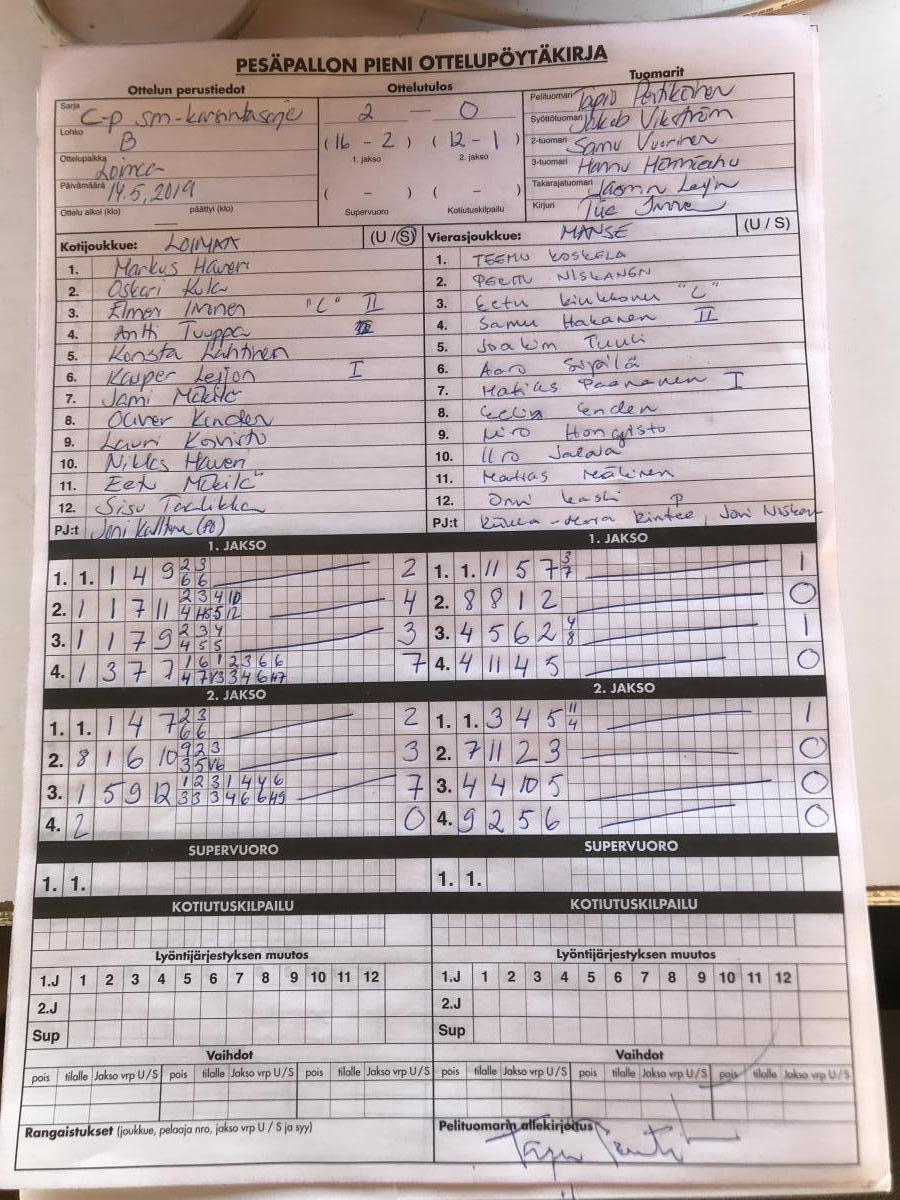 PESÄPALLON PIENI OTTELUPÖYTÄKIRJA
Ottelun perustiedot
Ottelutulos
Tuomarit
Sarja C-p sm-karsintasarja
Lohko B
Ottelupaikka Loimaa
Päivämäärä 14.5.2019
Ottelu alkoi (klo) päättyi (klo)
2 — 0
(16 - 2) (12 - 1)
1. jakso 2. jakso
( - ) ( - )
Supervuoro Kotiutuskilpailu
Pelituomari Tapio
Syöttötuomari Jakob Vikström
2-tuomari Samu Vuorinen
3-tuomari Hannu
Takarajatuomari Jasmin
Kirjuri Tiie
Kotijoukkue: LOIMAA (U / S)
1. Markus Haveri
2. Oskari Kula
3. Elmer Ironen "C" II
4. Antti Tuuppa
5. Konsta Lahtinen
6. Kasper Leijon I
7. Jami Mäkilä
8. Oliver Kanden
9. Lauri Koivisto
10. Niklas Haveri
11. Eetu Mäkilä
12. Sisu
PJ:t Joni
Vierasjoukkue: MANSE (U / S)
1. TEEMU KOSKELA
2. PEETU NISKANEN
3. Eetu Kiukkonen "C"
4. Samu Hakanen II
5. Joakim Tuuli
6. Aaro Sipilä
7. Matias Paananen I
8. Eelis Enden
9. Niro Hongisto
10. Iiro Jalava
11. Matias Mäkinen
12. Onni Kaski
PJ:t Jori
1. JAKSO
1. 1. 1 4 9 2 3 2
6 6
2. 1 1 7 11 2 3 4 10 4
4 11 5 12
3. 1 1 7 9 2 3 4 3
4 5 5
4. 1 3 7 7 1 6 1 2 3 6 6 7
1. JAKSO
1. 1. 11 5 7 3 1
7
2. 8 8 1 2 0
3. 4 5 6 2 4 1
8
4. 4 11 4 5 0
2. JAKSO
1. 1. 1 4 7 2 3 2
6 6
2. 8 1 6 10 9 2 3 3
3. 1 5 9 12 1 2 3 1 4 4 6 7
4. 2 0
2. JAKSO
1. 1. 3 4 5 11 1
4
2. 7 11 2 3 0
3. 4 4 10 5 0
4. 9 2 5 6 0
SUPERVUORO
1. 1.
SUPERVUORO
1. 1.
KOTIUTUSKILPAILU
KOTIUTUSKILPAILU
Lyöntijärjestyksen muutos
1.J 1 2 3 4 5 6 7 8 9 10 11 12
2.J
Sup
Lyöntijärjestyksen muutos
1.J 1 2 3 4 5 6 7 8 9 10 11 12
2.J
Sup
Vaihdot
pois tilalle Jakso vrp U / S pois tilalle Jakso vrp U / S pois tilalle Jakso vrp U / S
Vaihdot
pois tilalle Jakso vrp U / S pois tilalle Jakso vrp U / S pois tilalle Jakso vrp U / S
Rangaistukset (joukkue, pelaaja nro, jakso vrp U / S ja syy)
Pelituomarin allekirjoitus